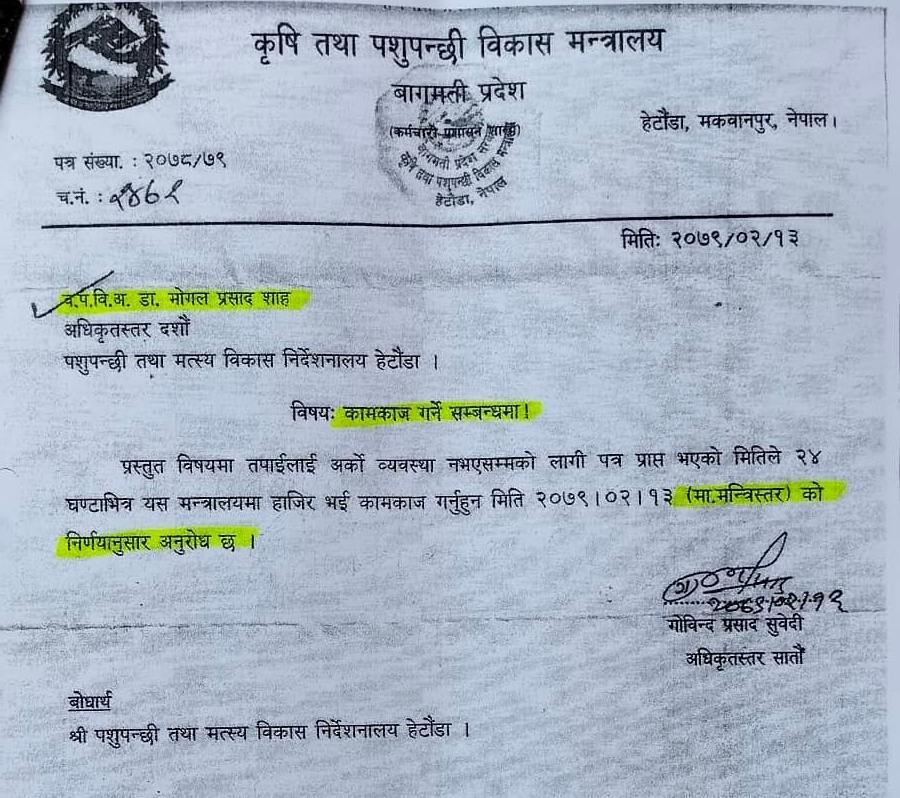 कृषि तथा पशुपन्छी विकास मन्त्रालय
बागमती प्रदेश
(कर्मचारी प्रशासन शाखा)
बागमती प्रदेश
कृषि तथा पशुपन्छी विकास मन्त्रालय
हेटौंडा, नेपाल
हेटौंडा, मकवानपुर, नेपाल।
पत्र संख्या. : २०७८/७९
च.नं. :
मितिः २०७९/०२/१३
व.प.वि.अ. डा. मोगल प्रसाद शाह
अधिकृतस्तर दशौं
पशुपन्छी तथा मत्स्य विकास निर्देशनालय हेटौंडा ।
विषयः कामकाज गर्ने सम्बन्धमा।
प्रस्तुत विषयमा तपाईलाई अर्को व्यवस्था नभएसम्मको लागी पत्र प्राप्त भएको मितिले २४
घण्टाभित्र यस मन्त्रालयमा हाजिर भई कामकाज गर्नुहुन मिति २०७९।०२।१३ (मा.मन्त्रिस्तर) को
निर्णयानुसार अनुरोध छ ।
२०७९।०२।१३
गोविन्द प्रसाद सुवेदी
अधिकृतस्तर सातौं
बोधार्थ
श्री पशुपन्छी तथा मत्स्य विकास निर्देशनालय हेटौंडा ।